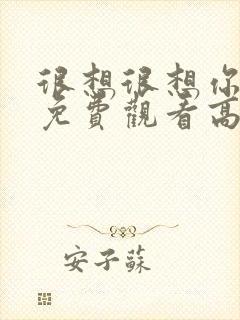 很想很想你
免費觀看高
安子蘇